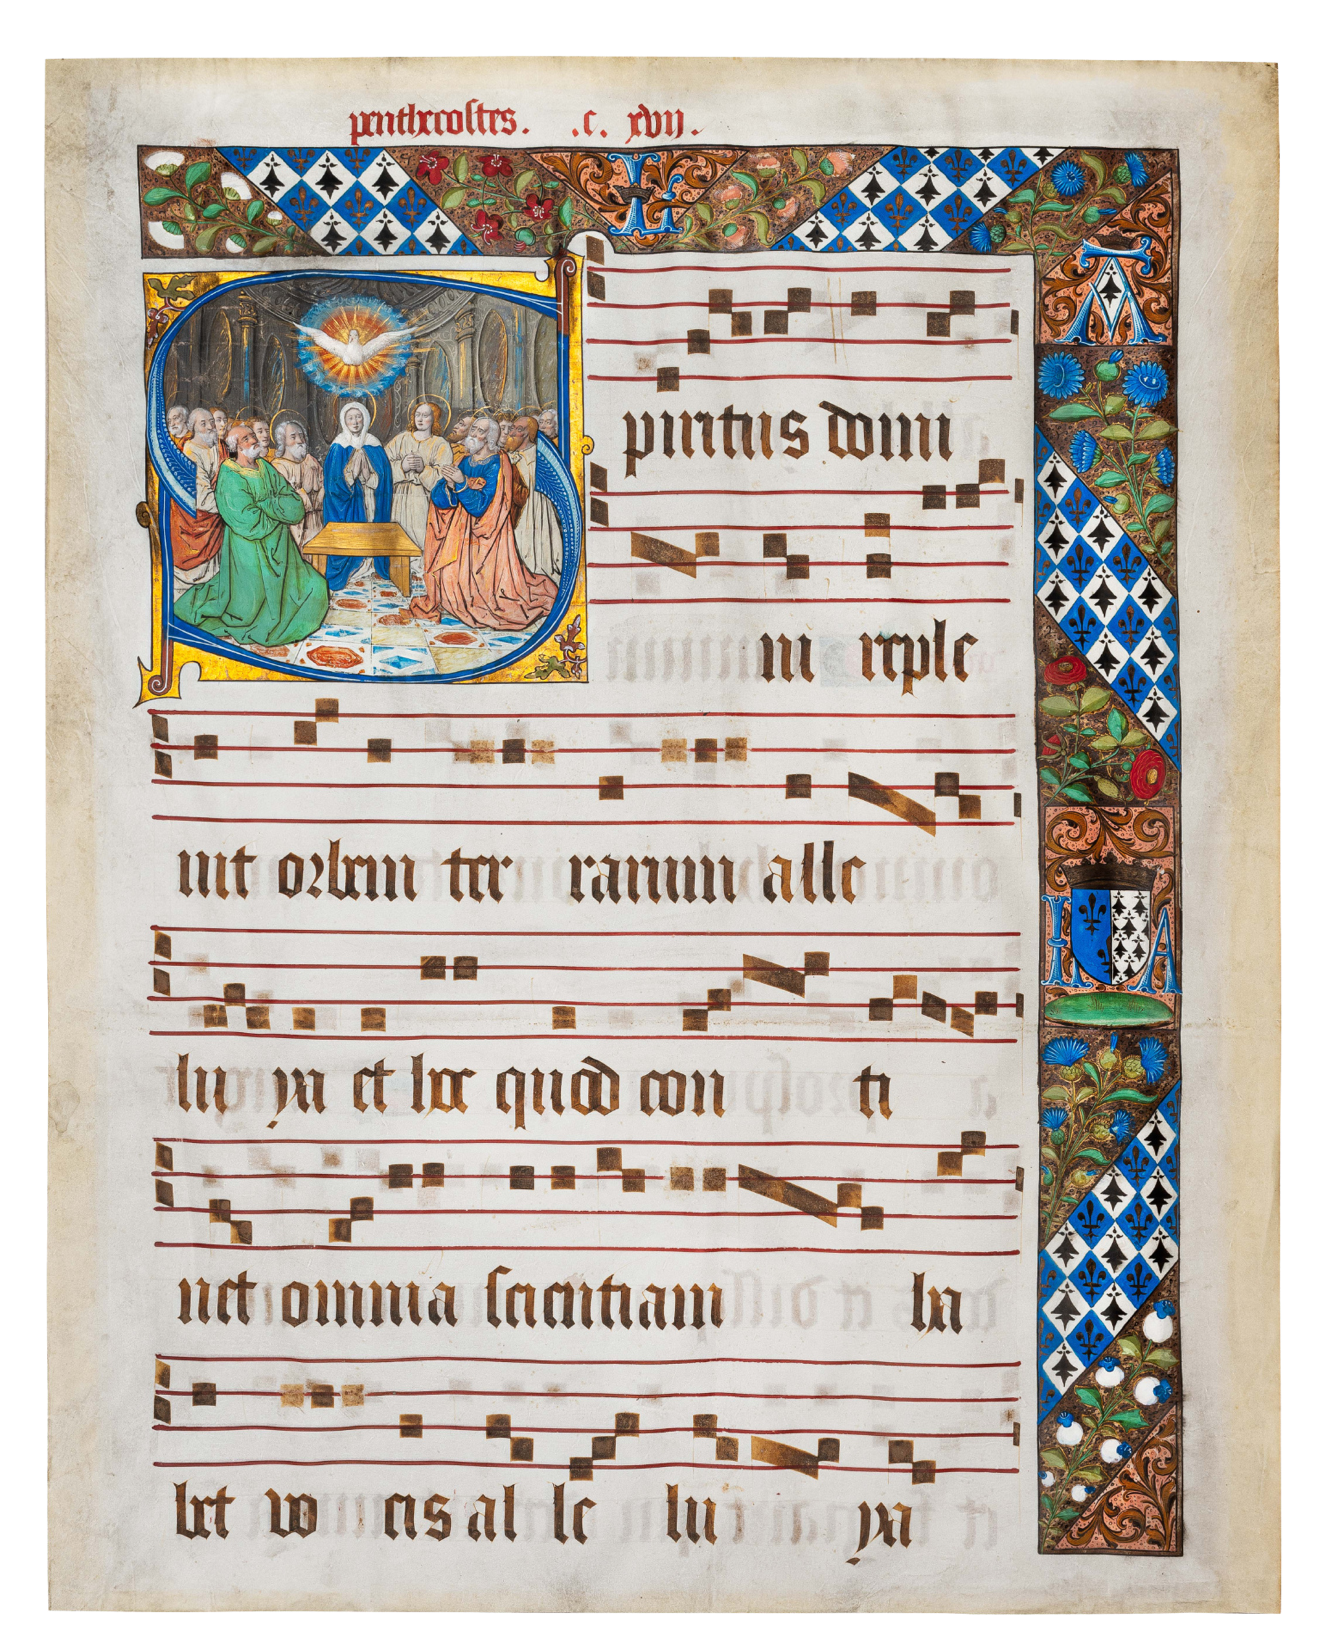 penthecostes. .c. xvij.
L
A
Spiritus domi
ni reple
uit orbem ter rarum alle
I A
lu ya et hoc quod con ti
net omnia scientiam ha
bet vo cis al le lu ya